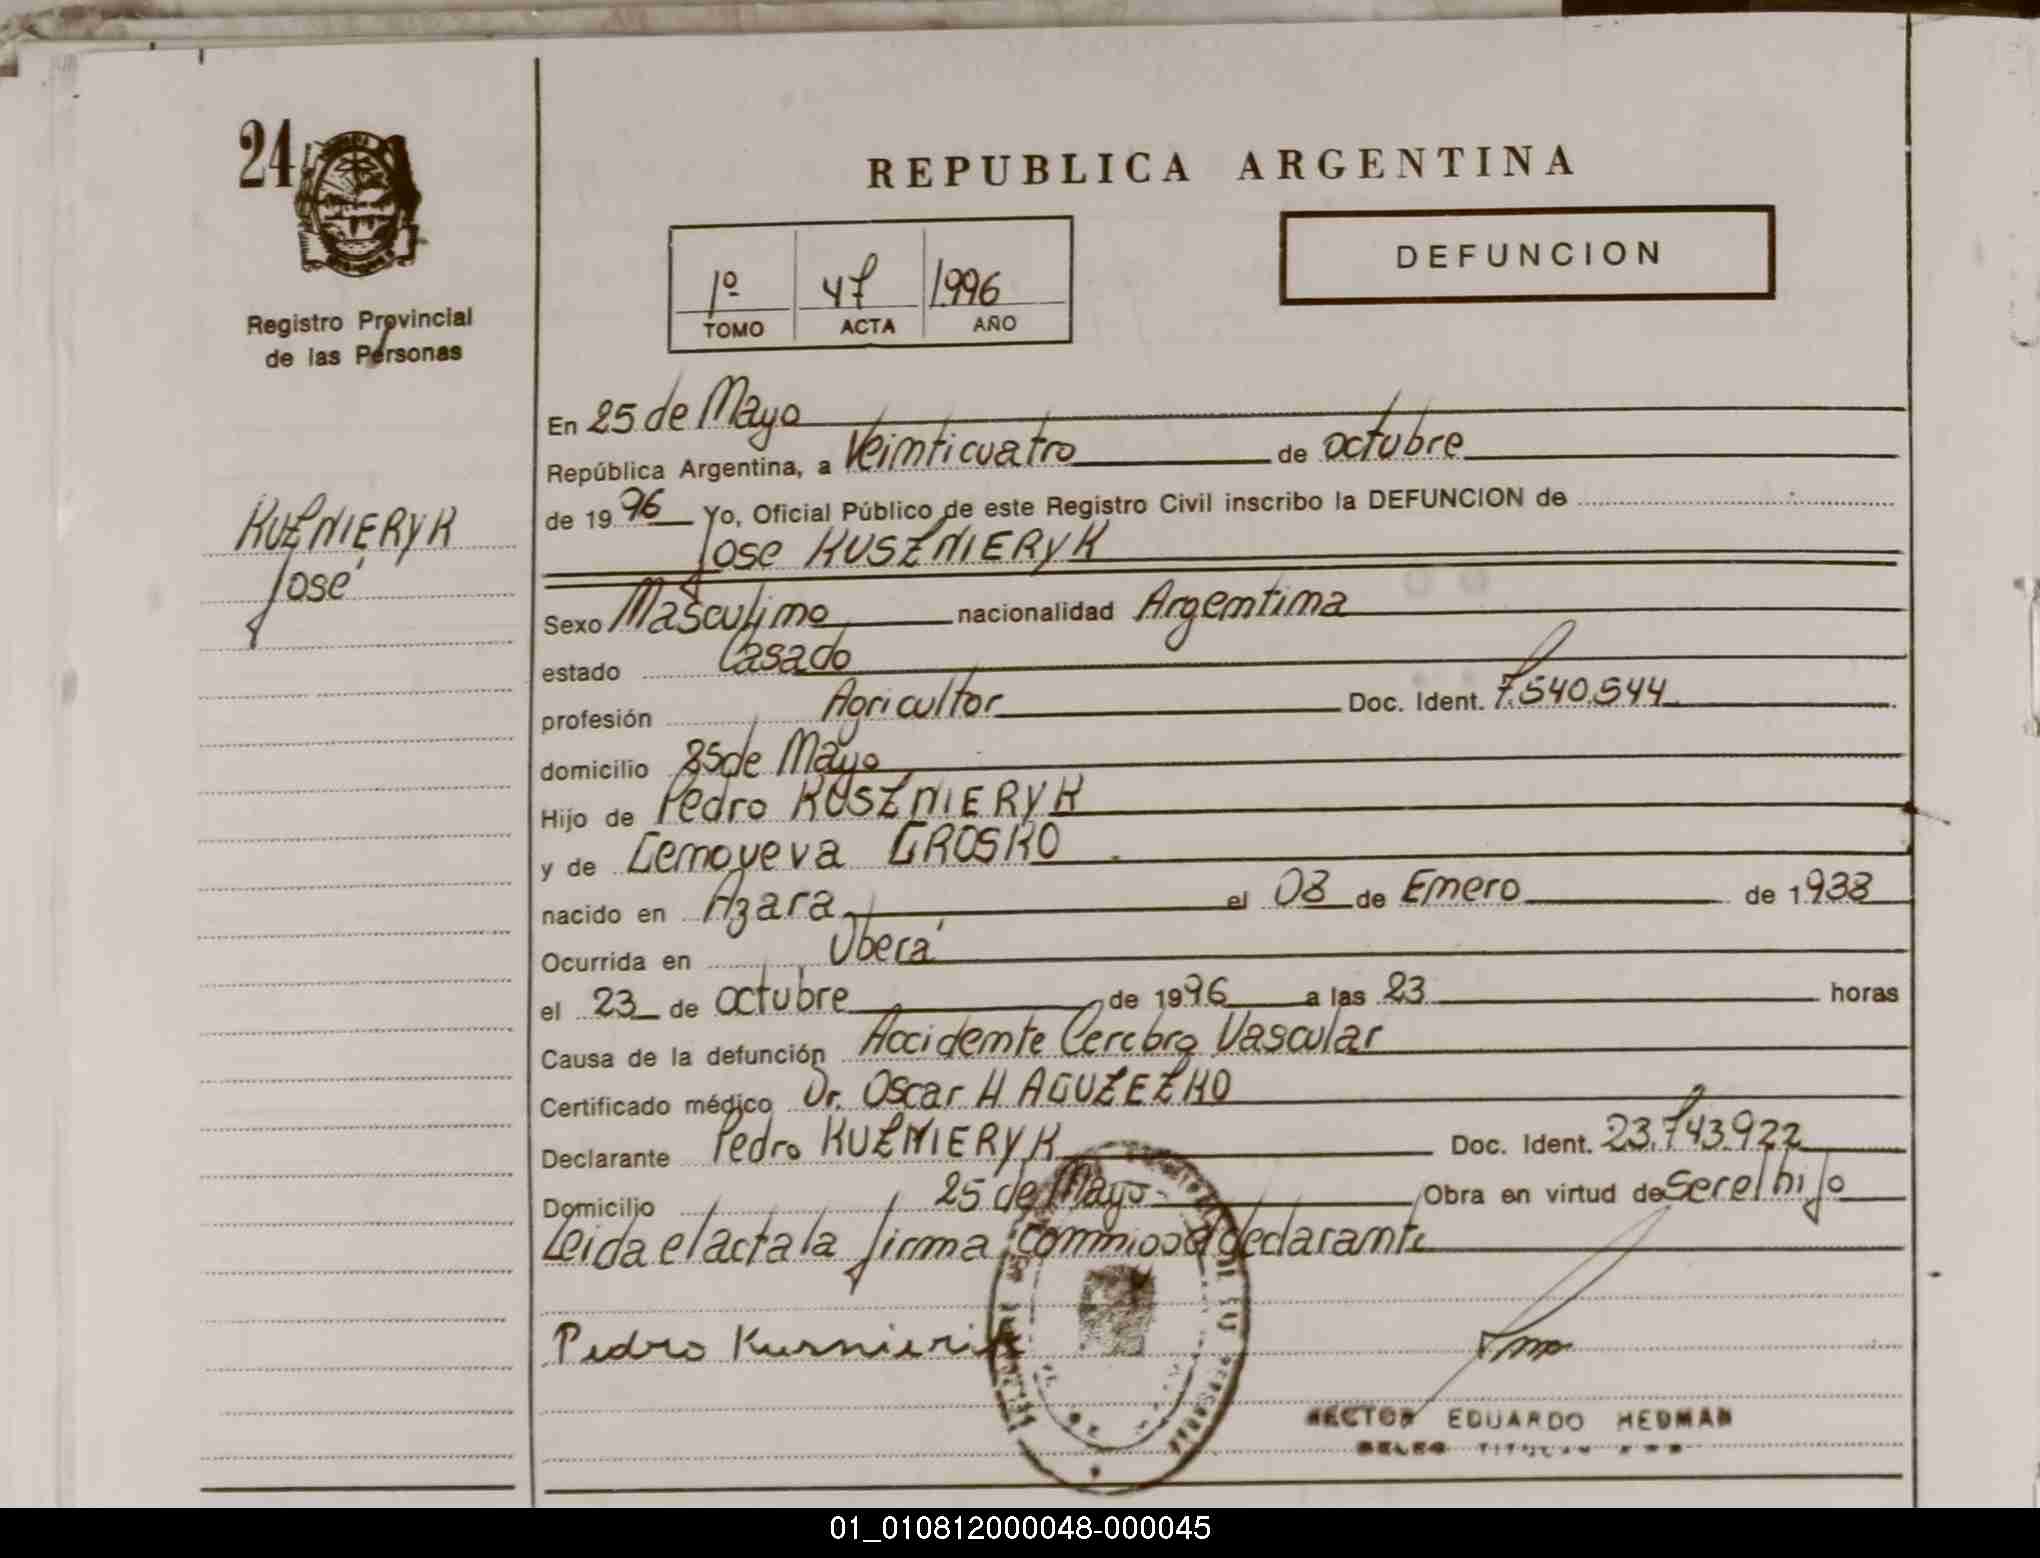 24
Registro Provincial
de las Personas
REPUBLICA ARGENTINA
1º 47 1996
TOMO ACTA AÑO
DEFUNCION
En 25 de Mayo
República Argentina, a Veinticuatro de octubre
de 1996 Yo, Oficial Público de este Registro Civil inscribo la DEFUNCION de
Jose KUSZNIERYK
KUZNIERYK
José
Sexo Masculino nacionalidad Argentina
estado Casado
profesión Agricultor Doc. Ident. 7.540.544
domicilio 25 de Mayo
Hijo de Pedro KUSZNIERYK
y de Genoveva GROSKO
nacido en Azara el 08 de Enero de 1938
Ocurrida en Oberá
el 23 de octubre de 1996 a las 23 horas
Causa de la defunción Accidente Cerebro Vascular
Certificado médico Dr. Oscar H AGUZEZKO
Declarante Pedro KUZNIERYK Doc. Ident. 23.743.922
Domicilio 25 de Mayo Obra en virtud de ser el hijo
Leida el acta la firma conmigo el declarante
Pedro Kusnierik
HECTOR EDUARDO HEDMAN
01_010812000048-000045